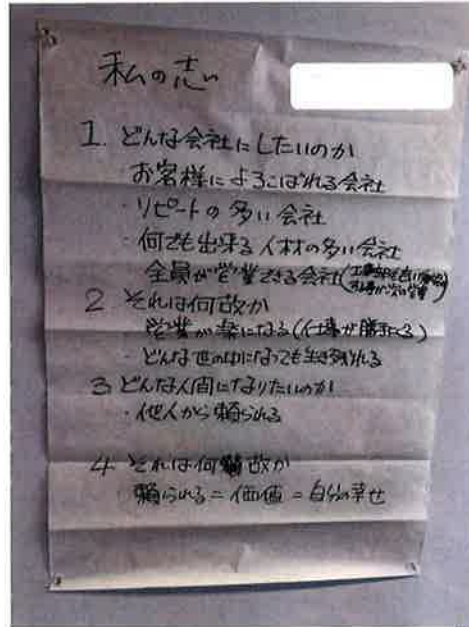 私の志い
1. どんな会社にしたいのか
・お客様によろこばれる会社
・リピートの多い会社
・何でも出来る人材の多い会社
全員が営業できる会社(
2 それは何故か
営業が楽になる(仕事が勝手にくる)
・どんな世の中になっても生き残れる
3 どんな人間になりたいのか
・他人から頼られる
4 それは何故か
頼られる=価値=自分の幸せ